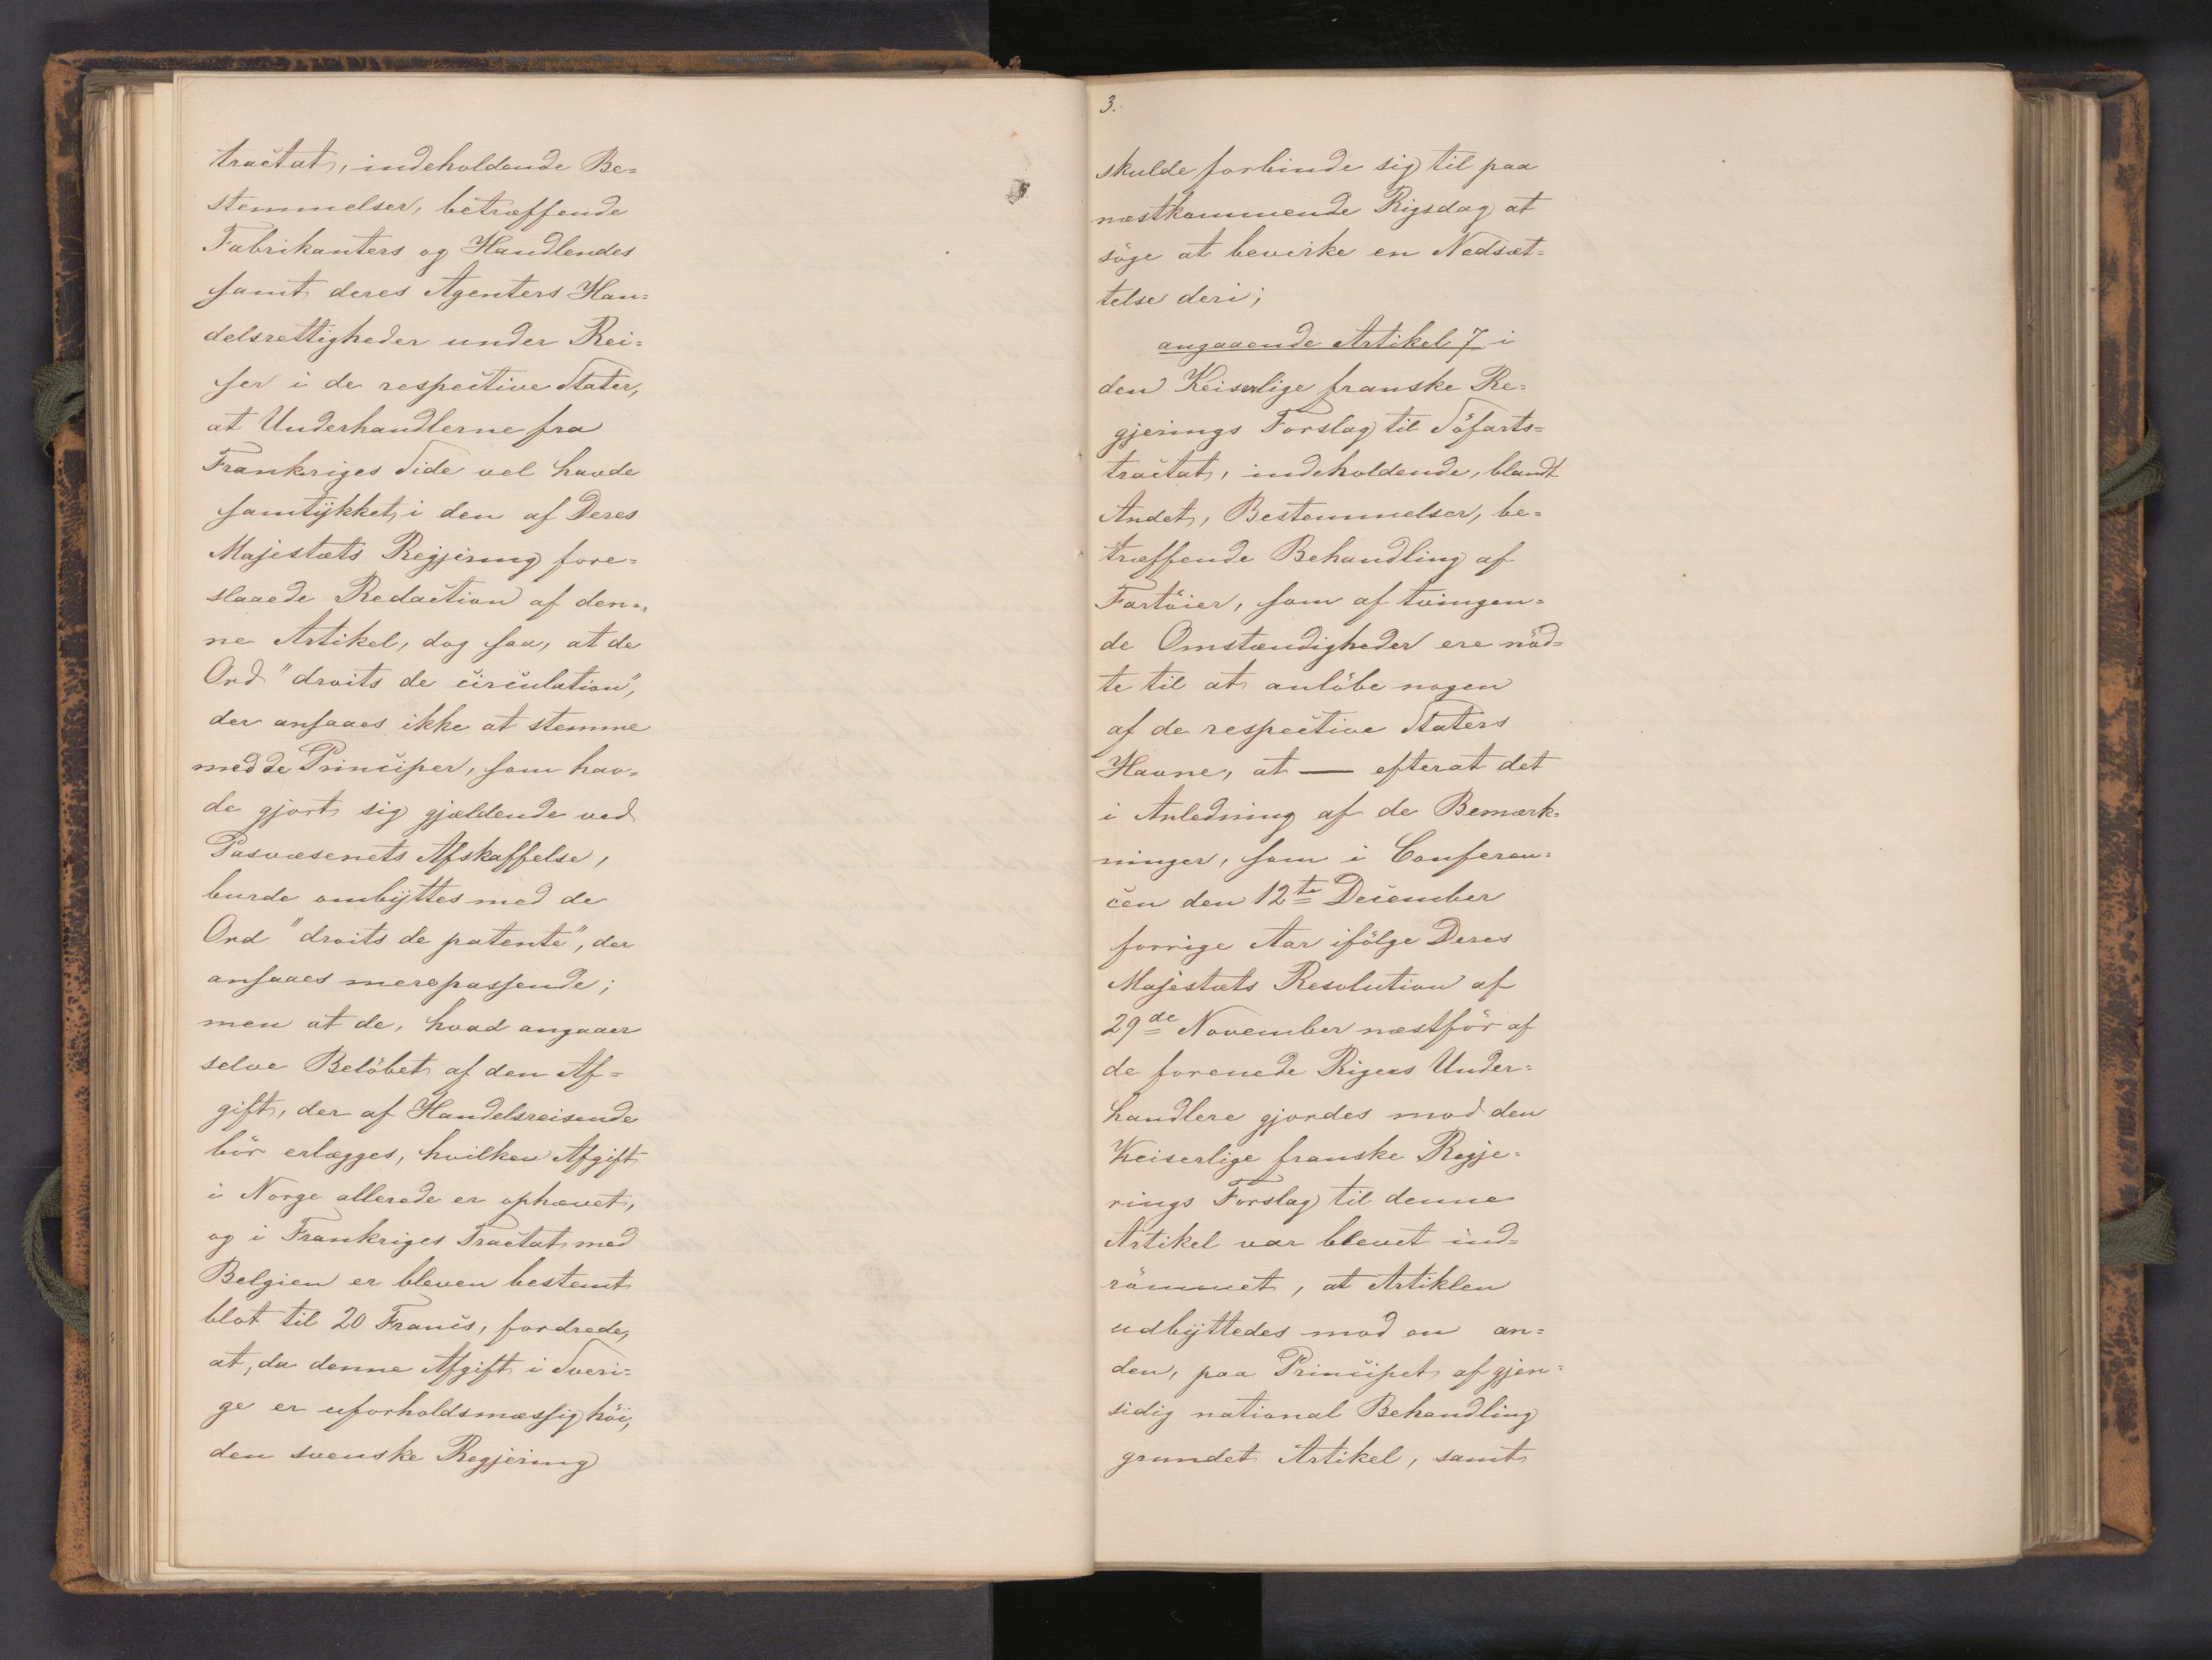 tractat, indeholdende Be=
stemmelser, betræffende
Fabrikanters og Handlendes
samt deres Agenters Han=
delsrettigheder under Rei=
ser i de respective Stater,
at Underhandlerne fra
Frankriges Side vel havde
samtÿkket i den af Deres
Majestæts Regjering fore=
slaaede Redaction af den=
ne Artikel, dog saa, at de
Ord "droits de circulation",
der ansaaes ikke at stemme
med de Principer, som hav=
de gjort sig gjældende ved
Pasvæsenets Afskaffelse,
burde ombÿttes med de
Ord "droits de patente", der
ansaaes mere passende;
men at de, hvad angaaer
selve Belöbet af den Af=
gift, der af Handelsreisende
bör erlægges, hvilken Afgift
i Norge allerede er ophævet,
og i Frankriges Tractat med
Belgien er bleven bestemt
blot til 20 Francs, fordrede,
at, da denne Afgift i Sveri=
ge er uforholdsmæssig höi,
den svenske Regjering
3.
skulde forbinde sig til paa
næstkommende Rigsdag at
söge at bevirke en Nedsæt=
telse deri;
angaaende Artikel 7 i
den Keiserlige franske Re=
gjerings Forslag til Söfarts=
tractat, indeholdende, blandt
Andet, Bestemmelser, be=
træffende Behandling af
Fartöier, som af tvingen=
de Omstændigheder ere nöd=
te til at anlöbe nogen
af de respective Staters
Havne, at — efterat det
i Anledning af de Bemærk=
ninger, som i Conferen=
cen den 12te December
forrige Aar ifölge Deres
Majestæts Resolution af
29de November næstför af
de forenede Rigers Under=
handlere gjordes mod den
Keiserlige franske Regje=
rings Forslag til denne
Artikel var blevet ind=
römmet, at Artiklen
udbÿttedes mod en an=
den, paa Principet af gjen=
sidig national Behandling
grundet Artikel, samt